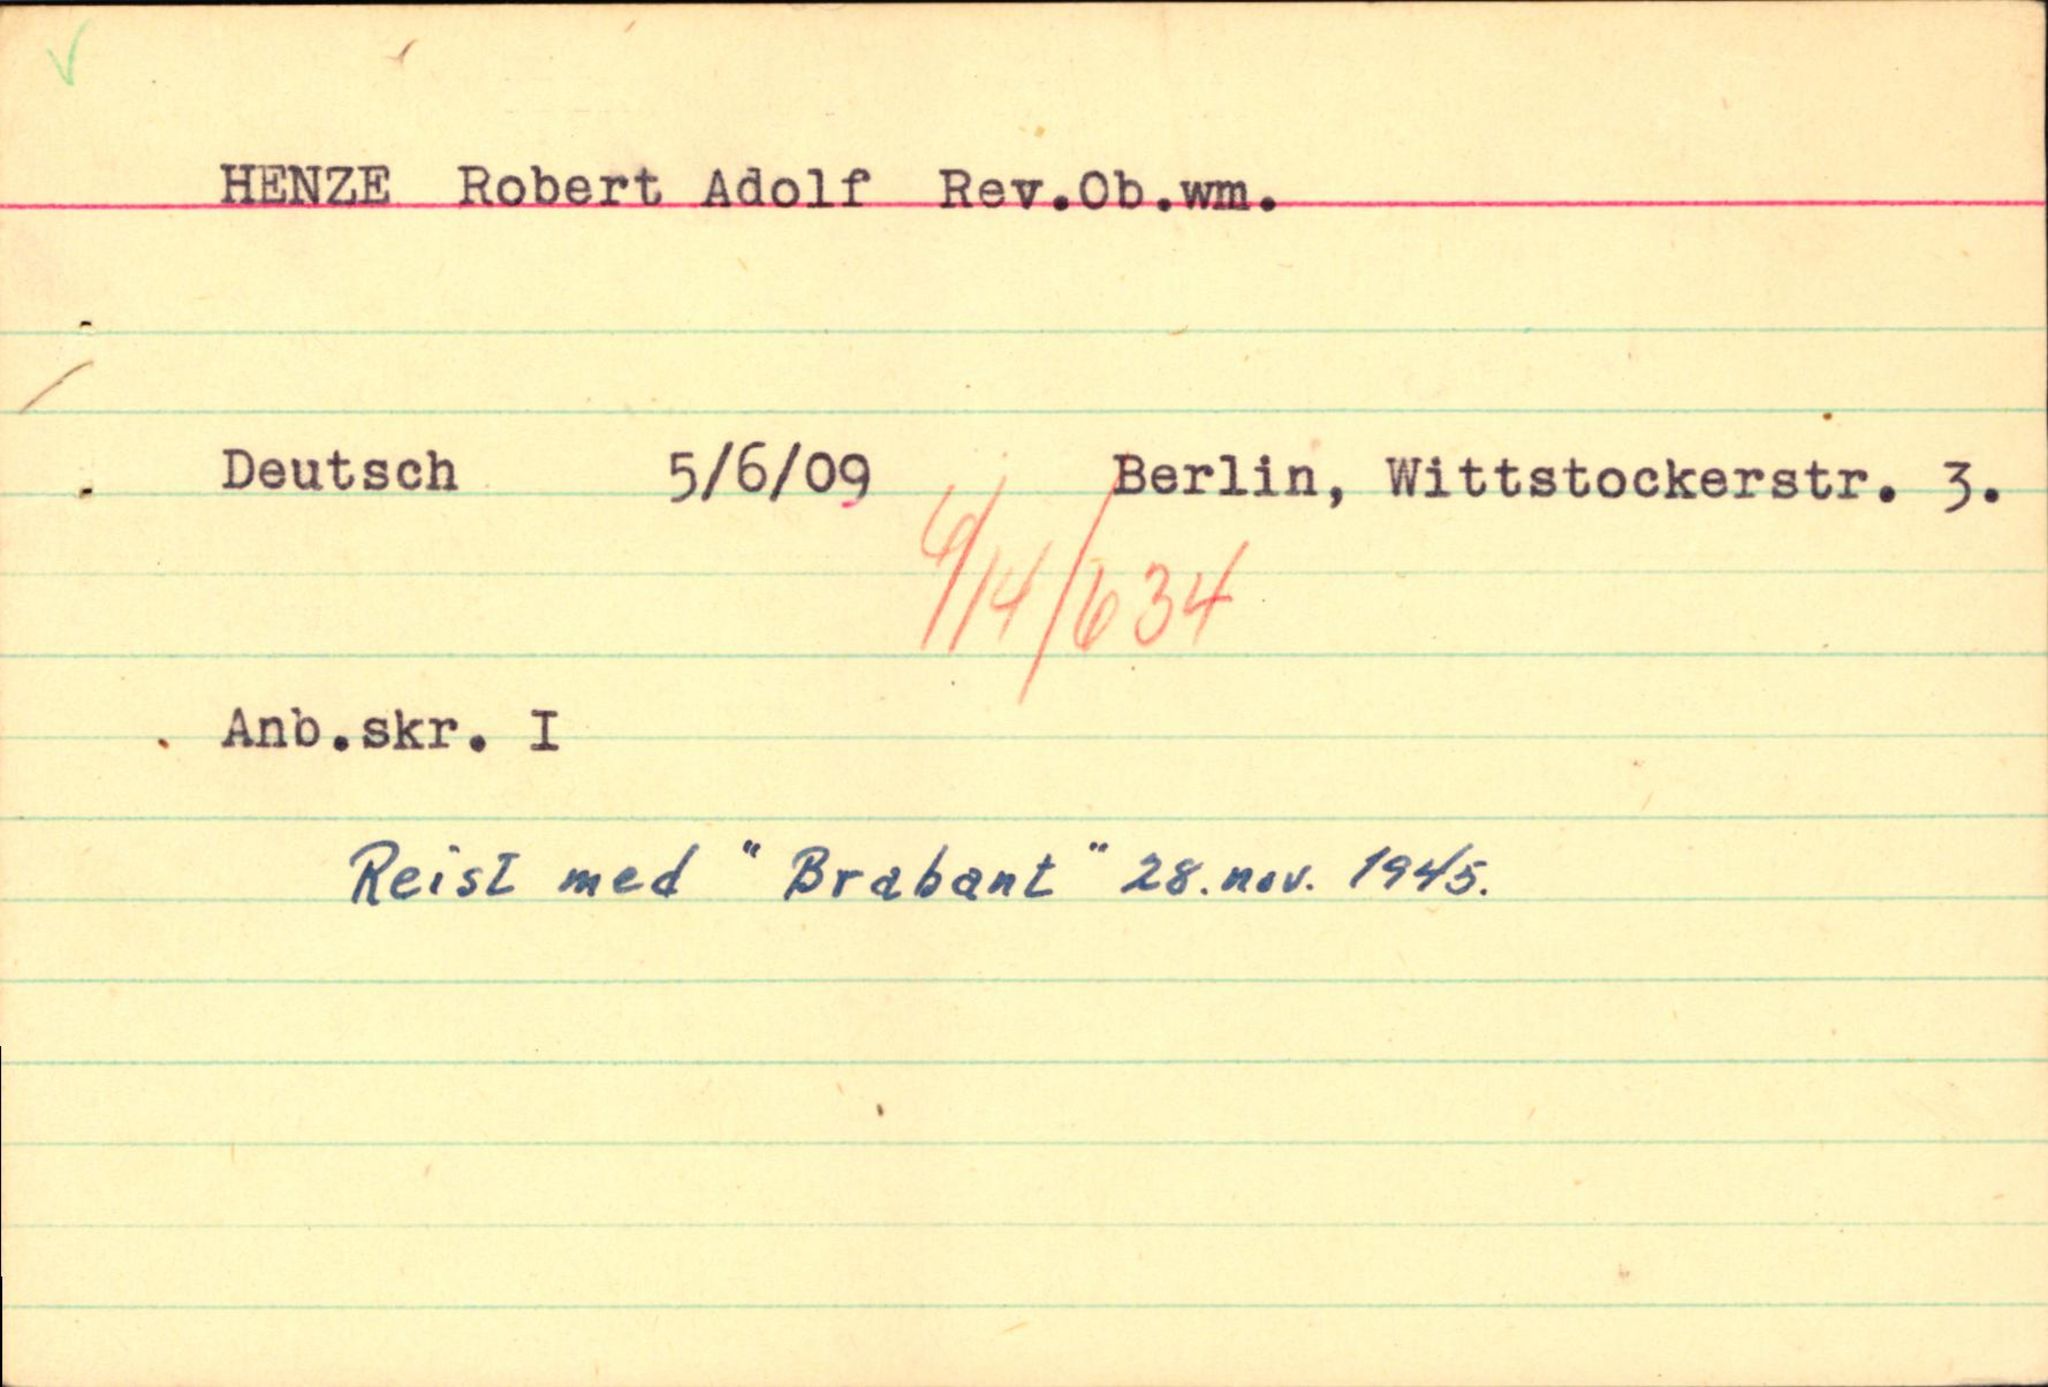 HENZE Robert Adolf Rev.Ob.wm.
Deutsch 5/6/09 Berlin, Wittstockerstr. 3.
6/14/634
Anb.skr. I
Reist med "Brabant" 28. nov. 1945.